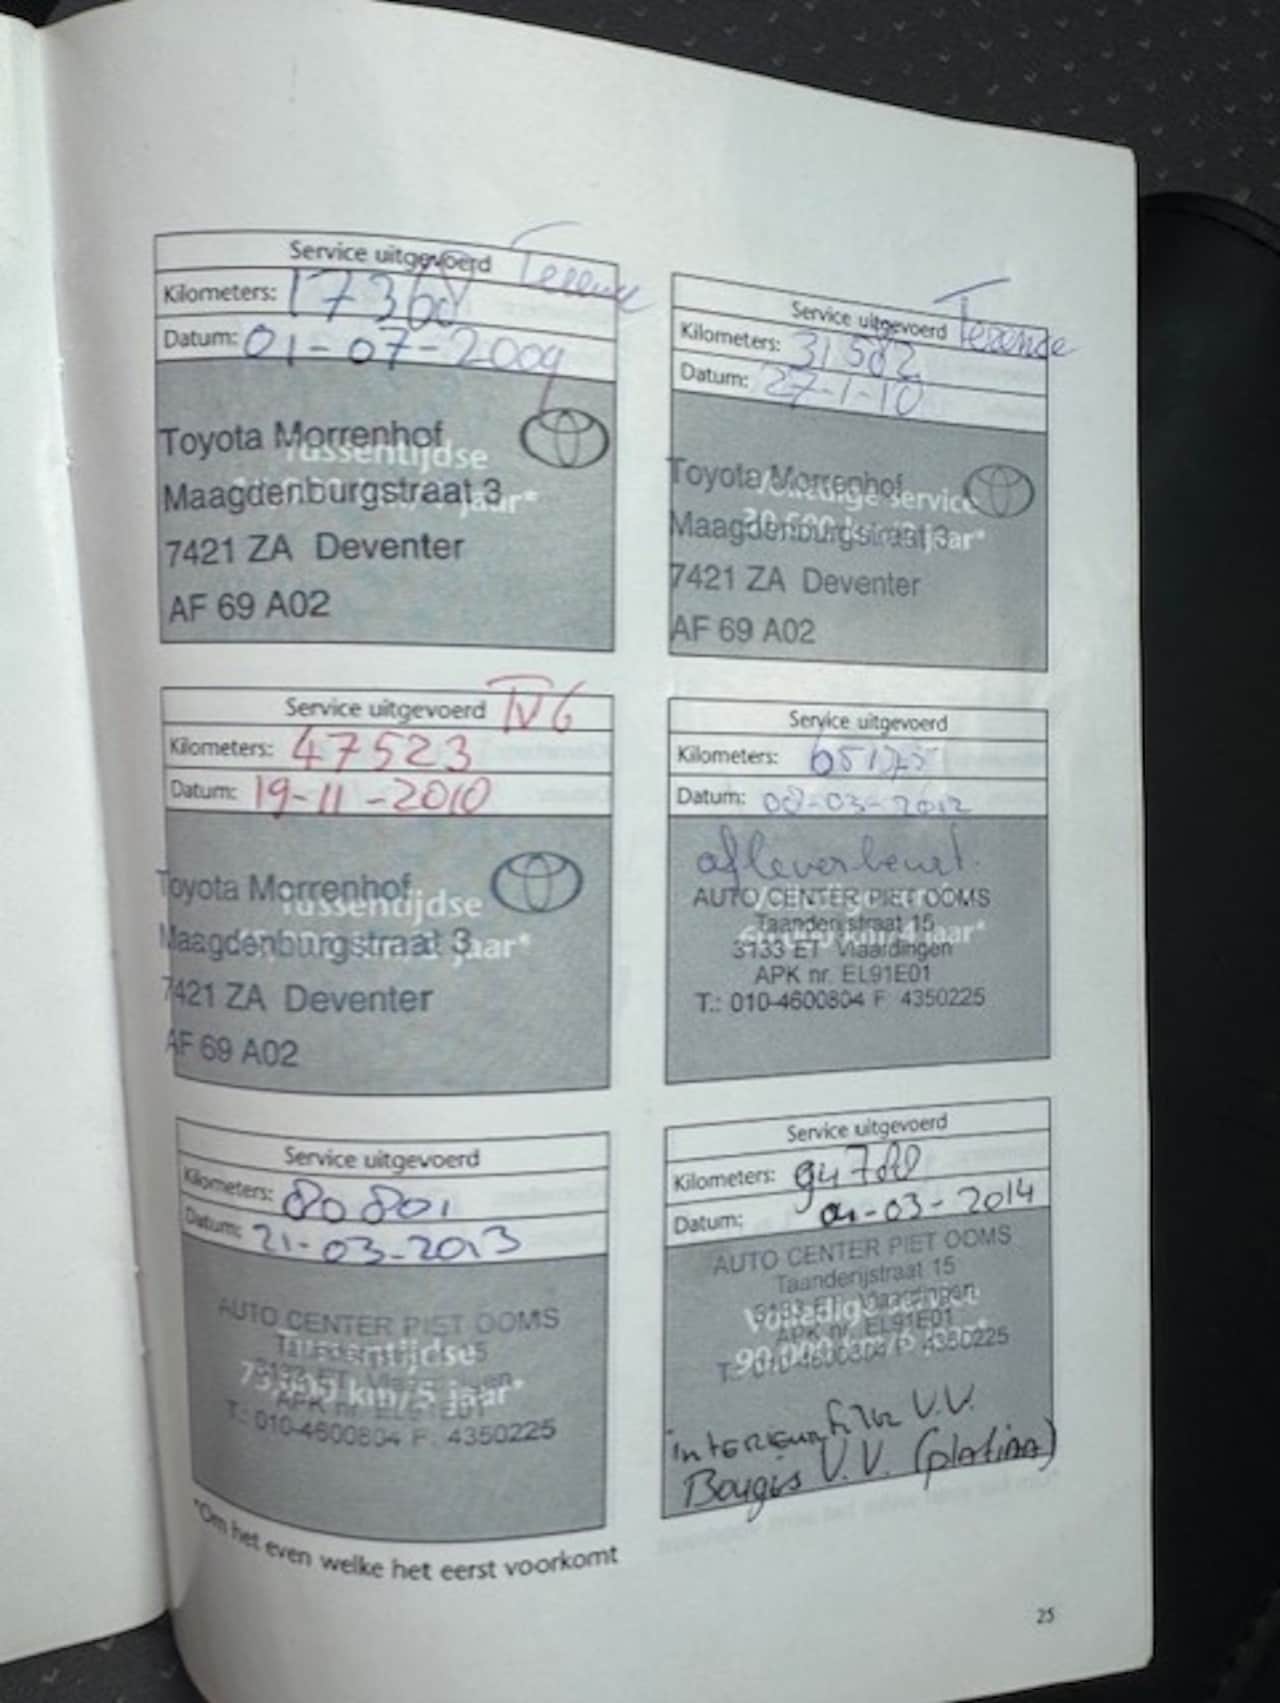 Service uitgevoerd
Kilometers: 17368
Datum: 01-07-2009
Tussentijdse
jaar*
Toyota Morrenhof
Maagdenburgstraat 3
7421 ZA Deventer
AF 69 A02
Service uitgevoerd Terence
Kilometers: 31582
Datum: 27-1-10
Volledige service
jaar*
Toyota Morrenhof
Maagdenburgstraat 3
7421 ZA Deventer
AF 69 A02
Service uitgevoerd TVG
Kilometers: 47523
Datum: 19-11-2010
Tussentijdse
jaar*
Toyota Morrenhof
Maagdenburgstraat 3
7421 ZA Deventer
AF 69 A02
Service uitgevoerd
Kilometers:
Datum: 08-03-2012
afleverbeurt.
jaar*
AUTO CENTER PIET OOMS
Taanderijstraat 15
3133 ET Vlaardingen
APK nr. EL91E01
T.: 010-4600804 F. 4350225
Service uitgevoerd
Kilometers: 80801
Datum: 21-03-2013
Tussentijdse
75.000 km/5 jaar*
AUTO CENTER PIET OOMS
3133 ET Vlaardingen
APK nr. EL91E01
T.: 010-4600804 F. 4350225
Service uitgevoerd
Kilometers:
Datum: 01-03-2014
Volledige service
90.000 km/6 jaar*
AUTO CENTER PIET OOMS
Taanderijstraat 15
3133 ET Vlaardingen
APK nr. EL91E01
T.: 010-4600804 F. 4350225
interieurfilter V.V.
Bougis V.V. (platina)
*Om het even welke het eerst voorkomt
25